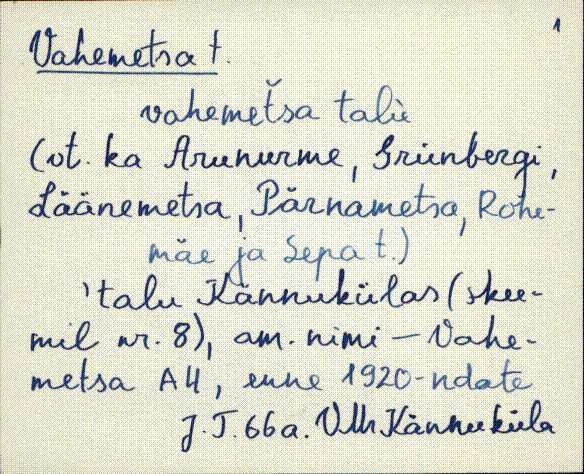 1
Vahemetsa t.
vahemeťsa talù
(vt. ka Arunurme, Grünbergi,
Läänemetsa, Pärnametsa, Rohe-
mäe ja Sepa t.)
'talu Kännukülas (skee-
mil nr. 8), am. nimi – Vahe-
metsa A4, enne 1920-ndate
J.T. 66a. VMr Kännuküla